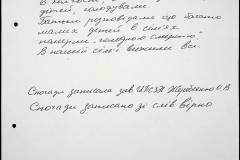 дітей, голодували.
Батьки розповідали що багато
малих дітей в сім'ях
померли голодною смертю.
В нашій сім'ї вижили всі.
Спогади записала зав
Спогади записано зі слів вірно